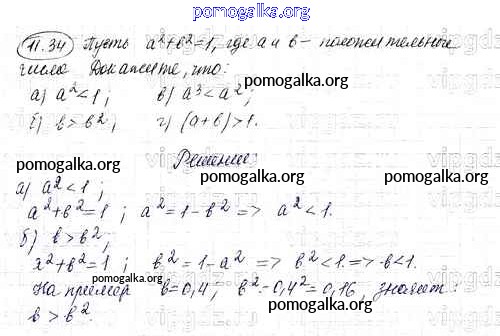 pomogalka.org
11.34 Пусть a²+b²=1, где a и b – положительные
числа. Докажите, что:
pomogalka.org
а) a²<1; в) a³<a²;
б) b>b²; г) (a+b)>1.
pomogalka.org
Решение:
pomogalka.org
pomogalka.org
а) a²<1;
a²+b²=1; a²=1-b² => a²<1.
б) b>b²;
pomogalka.org
x²+b²=1; b²=1-a² => b²<1 => b<1.
pomogalka.org
Например b=0,4; b²=0,4²=0,16, значит:
b>b².
pomogalka.org